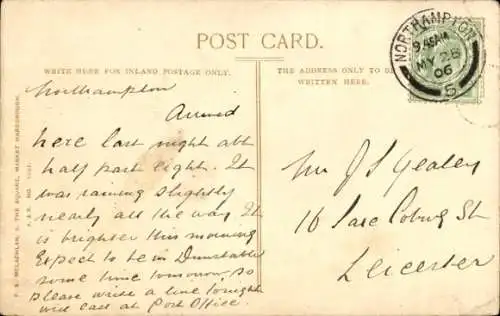 POST CARD.
WRITE HERE FOR INLAND POSTAGE ONLY.
THE ADDRESS ONLY TO BE
WRITTEN HERE.
NORTHAMPTON
9.45AM
MY 28
06
5
Northampton
Arrived
here last night abt
half past eight. It
was raining slightly
nearly all the way It
is brighter this morning
Expect to be in Dunstable
some time tomorrow, so
please write a line tonight
will call at Post Office.
Mr J S Yeatey
16 Saxe Coburg St
Leicester
THE SQUARE, MARKET HARBOROUGH.